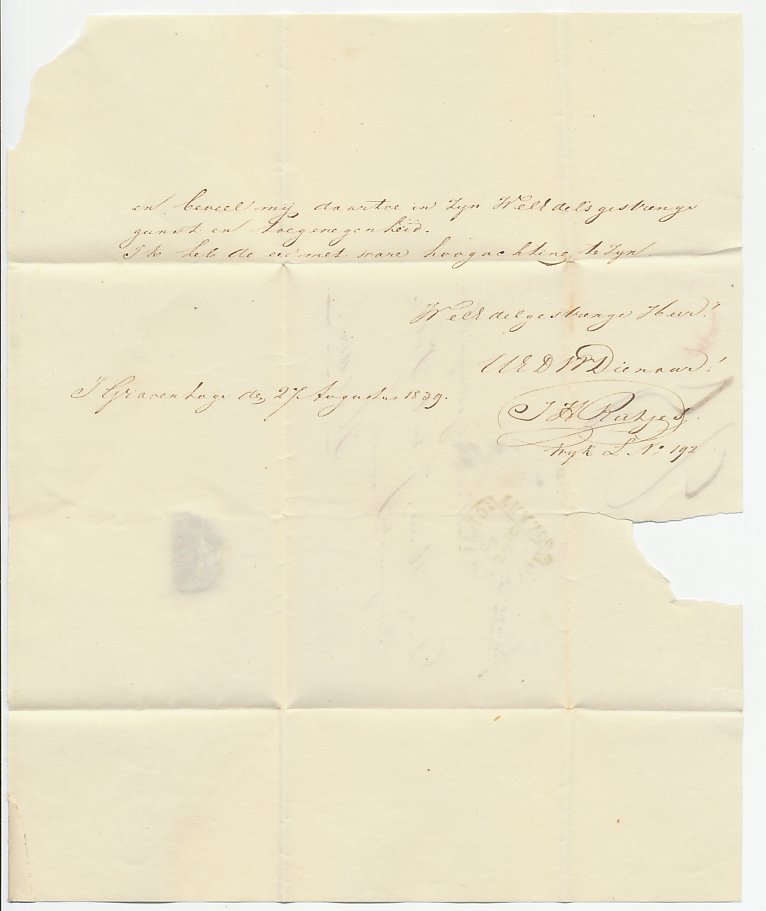 en beveel mij daartoe in zyn WelEdelsgestrenge
gunst en toegenegenheid.
Ik heb de eer met ware hoogachting te zyn.
WelEdelgestrenge Heer!
UEDWDienaar!
S'Gravenhage den 27 Augustus 1839.
J H
Wyk L. No 192